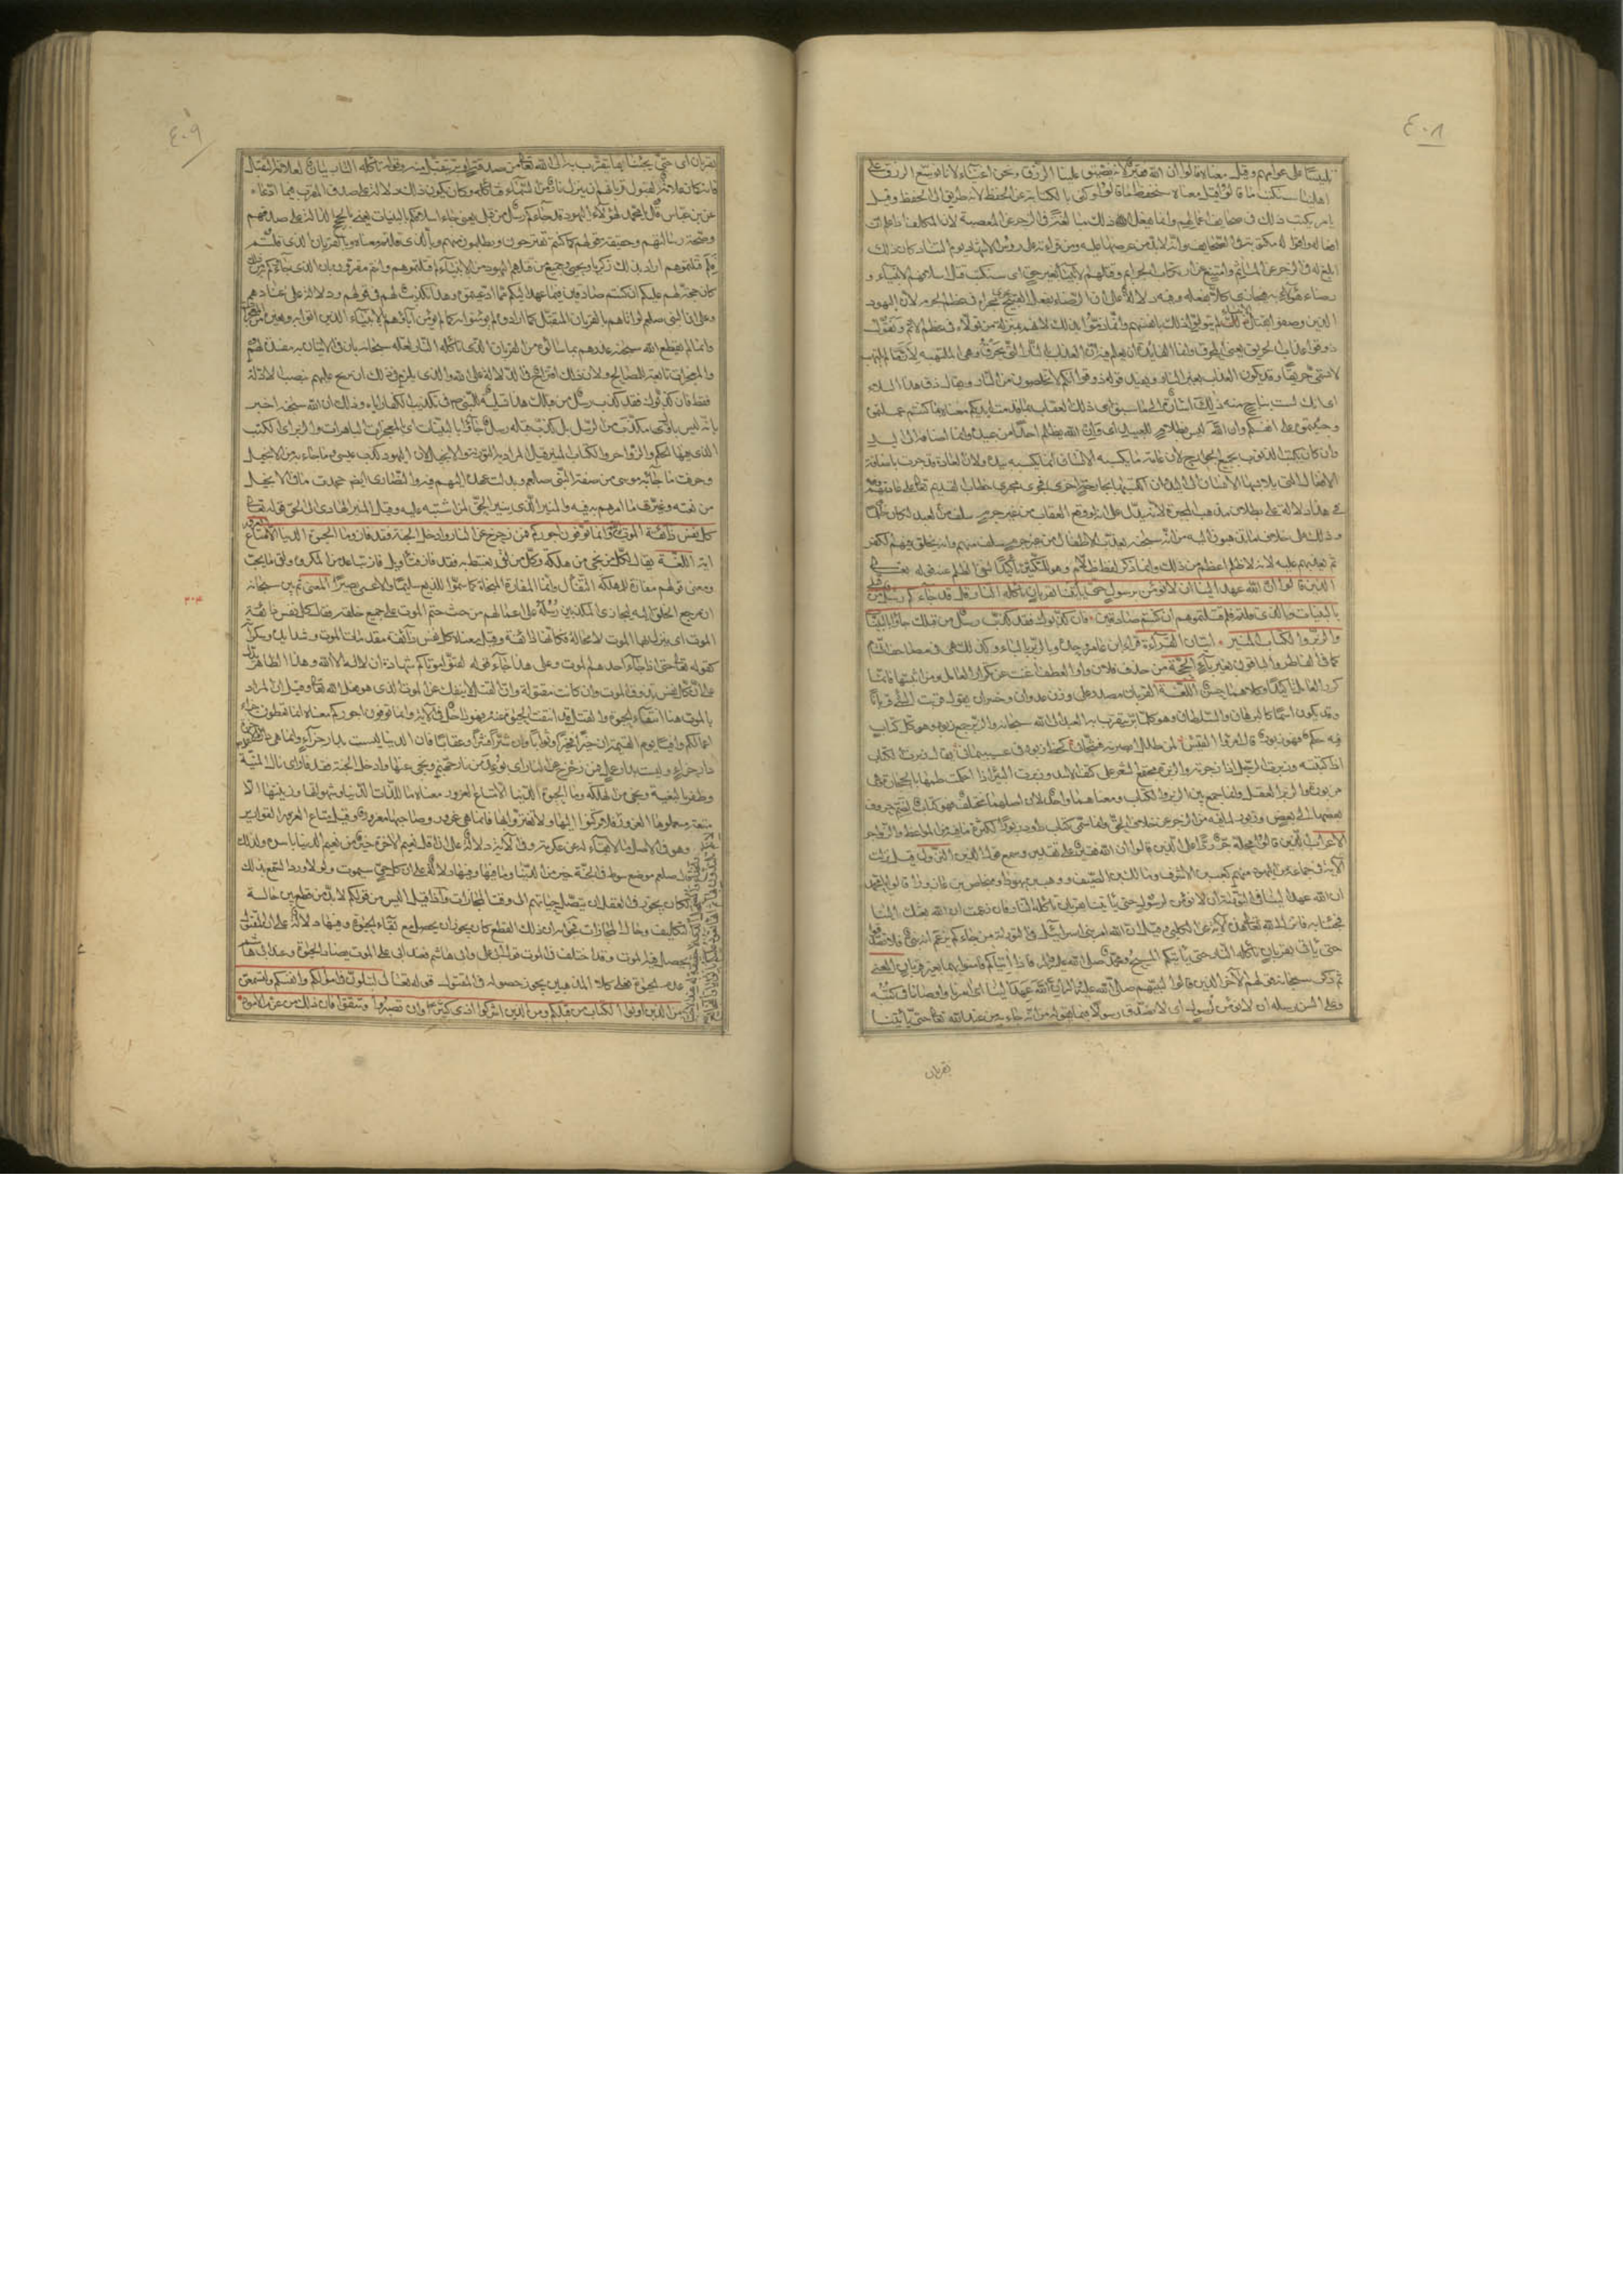 ٤٠٨
تلبيسا على عوامهم وقيل معناه قالوا ان الله فقير لانه يضيق علينا الرزق ونحن اغنياء لانا نوسع الرزق على
اهلينا سنكتب ما قالوا قيل معناه سنحفظ ما قالوا وكنى بالكتابة عن الحفظ لانه طريق الى الحفظ وقيل
يامر بكتب ذلك في صحايف اعمالهم وانما يفعل الله ذلك مبالغة في الزجر عن المعصية لان المكلف اذا علم ان
افعاله واقواله مكتوبة في الصحايف وانه لابد من عرضها عليه ومن قرائته على رؤس الاشهاد يوم التناد كان ذلك
ابلغ له في الزجر عن المآثم وامتنع عن ارتكاب الجرائم وقتلهم الانبياء بغير حق اي سنكتب قتل اسلافهم الانبياء و
رضاء هؤلاء به فنجازي كلا بفعله وفيه دلالة على ان الرضاء بفعل القبيح يجري مجراه في عظم الجرم لان اليهود
الذين وصفوا بقتل الانبياء لم يتولوا ذلك بانفسهم وانما ذموا بذلك لانهم بمنزلة من تولاه في عظم الاثم ونقول
ذوقوا عذاب الحريق يعني المحرق
لا تسمى حريقا وقد يكون العذاب بغير النار ويفيد قوله ذوقوا انكم لا تخلصون من النار ويقال ذق هذا البلاء
اي انك لست بناج منه ذلك اشارة الى ما سبق اي ذلك العقاب بما قدمت ايديكم معناه بما كنتم عملتموه
وجنيتموه على انفسكم وان الله ليس بظلام للعبيد اي وبان الله لا يظلم احدا من عبيده وانما اضافه الى اليد
وان كان يكتب الذنوب بجميع الجوارح لان عامة ما يكسبه الانسان انما يكسبه بيده ولان العادة قد جرت باضافة
الافعال التي يلابسها الانسان الى اليد وان اكتسبها بجارحة اخرى فجرى خطاب القديم تعالى على عادتهم وفي
هذا دلالة على بطلان مذهب المجبرة لانه يدل على انه لو وقع العقاب من غير جرم سلف من العبد لكان ظلما
وذلك على خلاف ما يذهبون اليه من انه سبحانه يعذب الاطفال من غير جرم سلف منهم وانه يخلق فيهم الكفر
ثم يعذبهم عليه لانه لا ظلم اعظم من ذلك وانما ذكر لفظ ظلام وهو للتكثير تأكيدا لنفي الظلم عنه قوله تعالى
الذين قالوا ان الله عهد الينا ان لا نؤمن لرسول حتى ياتينا بقربان تأكله النار قل قد جاءكم رسل من قبلي
بالبينات وبالذي قلتم فلم قتلتموهم ان كنتم صادقين فان كذبوك فقد كذب رسل من قبلك جاؤا بالبينات
والزبر والكتاب المنير ايتان القراءة قرأ ابن عامر وحده وبالزبر بالباء وكذلك هي في مصاحف الشام
كما في الفاطر والباقون بغير باء الحجة من حذف فلان واو العطف اغنت عن تكرار العامل ومن اثبتها فانما
كرر العامل تاكيدا وكلاهما حسن اللغة القربان مصدر على وزن عدوان وخسران يقول قربت الشيء قربانا
وقد يكون اسما كالبرهان والسلطان وهو كل بر يتقرب به العبد الى الله سبحانه والزبر جمع زبور وهو كل كتاب
فيه حكمة فهو زبور قال امرؤ القيس لمن طلل ابصرته فشجاني كخط زبور في عسيب يماني يقال زبرت الكتاب
اذا كتبته وزبرت الرجل اذا زجرته والزبرة مجتمع الشعر على كتف الاسد وزبرت البئر اذا احكمت طيها بالحجارة
والزبر العقل وانما جمع بين الزبر والكتاب ومعناهما واحد لان اصلهما مختلف فهو كتاب لضم حروف
بعضها الى بعض وزبور لما فيه من الزجر عن خلاف الحق وانما سمي كتاب داود زبورا لكثرة ما فيه من المواعظ والزواجر
الاعراب الذين قالوا محله جر ردا على الذين قالوا ان الله فقير على تقدير وسمع قول الذين النزول قيل نزلت
الآية في جماعة من اليهود منهم كعب بن الاشرف ومالك بن الصيف ووهب بن يهوذا وفنحاص بن عازوراء قالوا يا محمد
ان الله عهد الينا في التوراة ان لا نؤمن لرسول حتى ياتينا بقربان تأكله النار فان زعمت ان الله بعثك الينا
فجئنا به فانزل الله تعالى هذه الآية عن الكلبي وقيل ان الله امر بني اسرائيل في التوراة من جاءكم يزعم انه نبي فلا تصدقوه
حتى ياتي بقربان تأكله النار حتى ياتيكم المسيح ومحمد صلى الله عليه وآله فاذا اتياكم فآمنوا بهما بغير قربان المعنى
ثم ذكر سبحانه قولهم الآخر الذين قالوا لنبيهم صلى الله عليه وآله ان الله عهد الينا اي امرنا واوصانا في كتبه
وعلى السن رسله ان لا نؤمن لرسول اي لا نصدق رسولا فيما يقوله من انه جاء به من عند الله تعالى حتى يأتينا
بقربان
٤٠٩
بقربان اي حتى يجيئنا بما يتقرب به الى الله تعالى من صدقة او بر تقبل منه وقوله تأكله النار بيان لعلامة التقبل
فانه كان علامة لقبول قربانهم ان ينزل نار من السماء فتاكله وكان يكون ذلك دلالة على صدق المقرب فيما ادعاه
عن ابن عباس قل يا محمد لهؤلاء اليهود قد جاءكم رسل من قبلي يعني جاء اسلافكم بالبينات يعني بالحجج الدالة على صدقهم
وصحة رسالتهم وحقيقة قولهم كما كنتم تقترحون وتطلبون منهم وبالذي قلتم معناه وبالقربان الذي قلتم
فلم قتلتموهم اراد بذلك زكريا ويحيى وجميع من قتلهم اليهود من الانبياء
كان حجة لهم عليكم ان كنتم صادقين فيما عهد اليكم مما ادعيتموه وهذا تكذيب لهم في قولهم ودلالة على عنادهم
وعلى ان النبي صلعم لو اتاهم بالقربان المتقبل كما ارادوه لم يؤمنوا به كما لم يؤمن آباؤهم بالانبياء الذين اتوا به
وانما لم يقطع الله سبحانه عذرهم بما سألوه من القربان الذي تأكله النار لعلمه سبحانه بان في الاتيان به مفسدة لهم
والمعجزات تابعة للمصالح ولان ذلك اقتراح في الادلة على الله والذي يلزم في ذلك ان يزيح علتهم بنصب الادلة
فقط فان كذبوك فقد كذب رسل من قبلك هذا تسلية للنبي ص في تكذيب الكفار اياه وذلك ان الله سبحانه اخبر
بانه ليس باول مكذب من الرسل بل كذب قبله رسل جاؤا بالبينات اي بالمعجزات الباهرات والزبر اي الكتب
الذي فيها الحكم والزواجر والكتاب المنير قيل المراد به التورية والانجيل لان اليهود كذبت عيسى وما جاء به من الانجيل
وحرفت ما جاء به موسى من صفة النبي صلعم وبدلت عهده اليهم فيه والنصارى ايضا جحدت ما في الانجيل
من نعته وغيرت ما امرهم به فيه والمنير الذي ينير الحق لمن اشتبه عليه وقيل المنير الهادي الى الحق قوله تعالى
كل نفس ذائقة الموت وانما توفون اجوركم فمن زحزح عن النار وادخل الجنة فقد فاز وما الحيوة الدنيا الا متاع الغرور
آية اللغة يقال لكل من نجى من هلكة وكل من لقي ما يغتبط به فقد فاز وتأويل فاز تباعد من المكروه ولقي ما يحب
ومعنى قولهم مفازة للمهلكة التفأل وانما المفازة المنجاة كما سموا اللديغ سليما والاعمى بصيرا المعنى ثم بين سبحانه
ان مرجع الخلق اليه فيجازي المكذبين رسله على اعمالهم من حيث حتم الموت على جميع خلقه فقال كل نفس ذائقة
الموت اي ينزل بها الموت لا محالة فكانها ذائقة وقيل معناه كل نفس ذائقة مقدمات الموت وشدايده وسكراته
كقوله تعالى حتى اذا جاء احدهم الموت وعلى هذا جاء قوله لقنوا موتاكم شهادة ان لا اله الا الله وهذا الظاهر يدل
على ان كل نفس تذوق الموت وان كانت مقتولة وان القتل لا ينفك عن الموت الذي هو فعل الله تعالى وقيل ان المراد
بالموت هنا انتفاء الحيوة والقتيل قد انتفت الحيوة عنه فهو داخل في الآية وانما توفون اجوركم معناه انما تعطون جزاء
اعمالكم وافيا يوم القيمة ان خيرا فخيرا وثوابا وان شرا فشرا وعقابا فان الدنيا ليست بدار جزاء وانما هي
دار جزاء وليست بدار عمل فمن زحزح عن النار اي بوعد من نار جهنم ونجى عنها وادخل الجنة فقد فاز اي نال المنية
وظفر بالبغية ونجى من الهلكة وما الحيوة الدنيا الا متاع الغرور معناه وما لذات الدنيا وشهواتها وزينتها الا
متعة متعكموها الغرور فلا تركنوا اليها ولا تغتروا بها فانما هي غرور وصاحبها مغرور وقيل متاع الغرور القوارير
وهو في الاصل ما لا بقاء له عن عكرمة وفي الآية دلالة على ان اقل نعيم الآخرة خير من نعيم الدنيا باسره ولذلك
قال صلعم موضع سوط في الجنة خير من الدنيا وما فيها وفيها دلالة على ان كل حي سيموت ولو لا ورود السمع بذلك
لكان يجوز في العقل ان يتصل حياتهم الى وقت المجازات واذا قيل اليس من قولكم لابد من قطع بين حالة
التكليف وحال المجازات فجوابه ان ذلك القطع كان يجوز ان يحصل مع بقاء الحيوة وفيها دلالة على ان المقتول
يحصل فيه الموت وقد اختلف في الموت قولا ابي علي وابي هاشم فعند ابي علي الموت يضاد الحيوة وعند ابي هاشم
عدم الحيوة فعلى كلا المذهبين يجوز حصوله في المقتول قوله تعالى لتبلون في اموالكم وانفسكم ولتسمعن
من الذين اوتوا الكتاب من قبلكم ومن الذين اشركوا اذى كثيرا وان تصبروا وتتقوا فان ذلك من عزم الامور